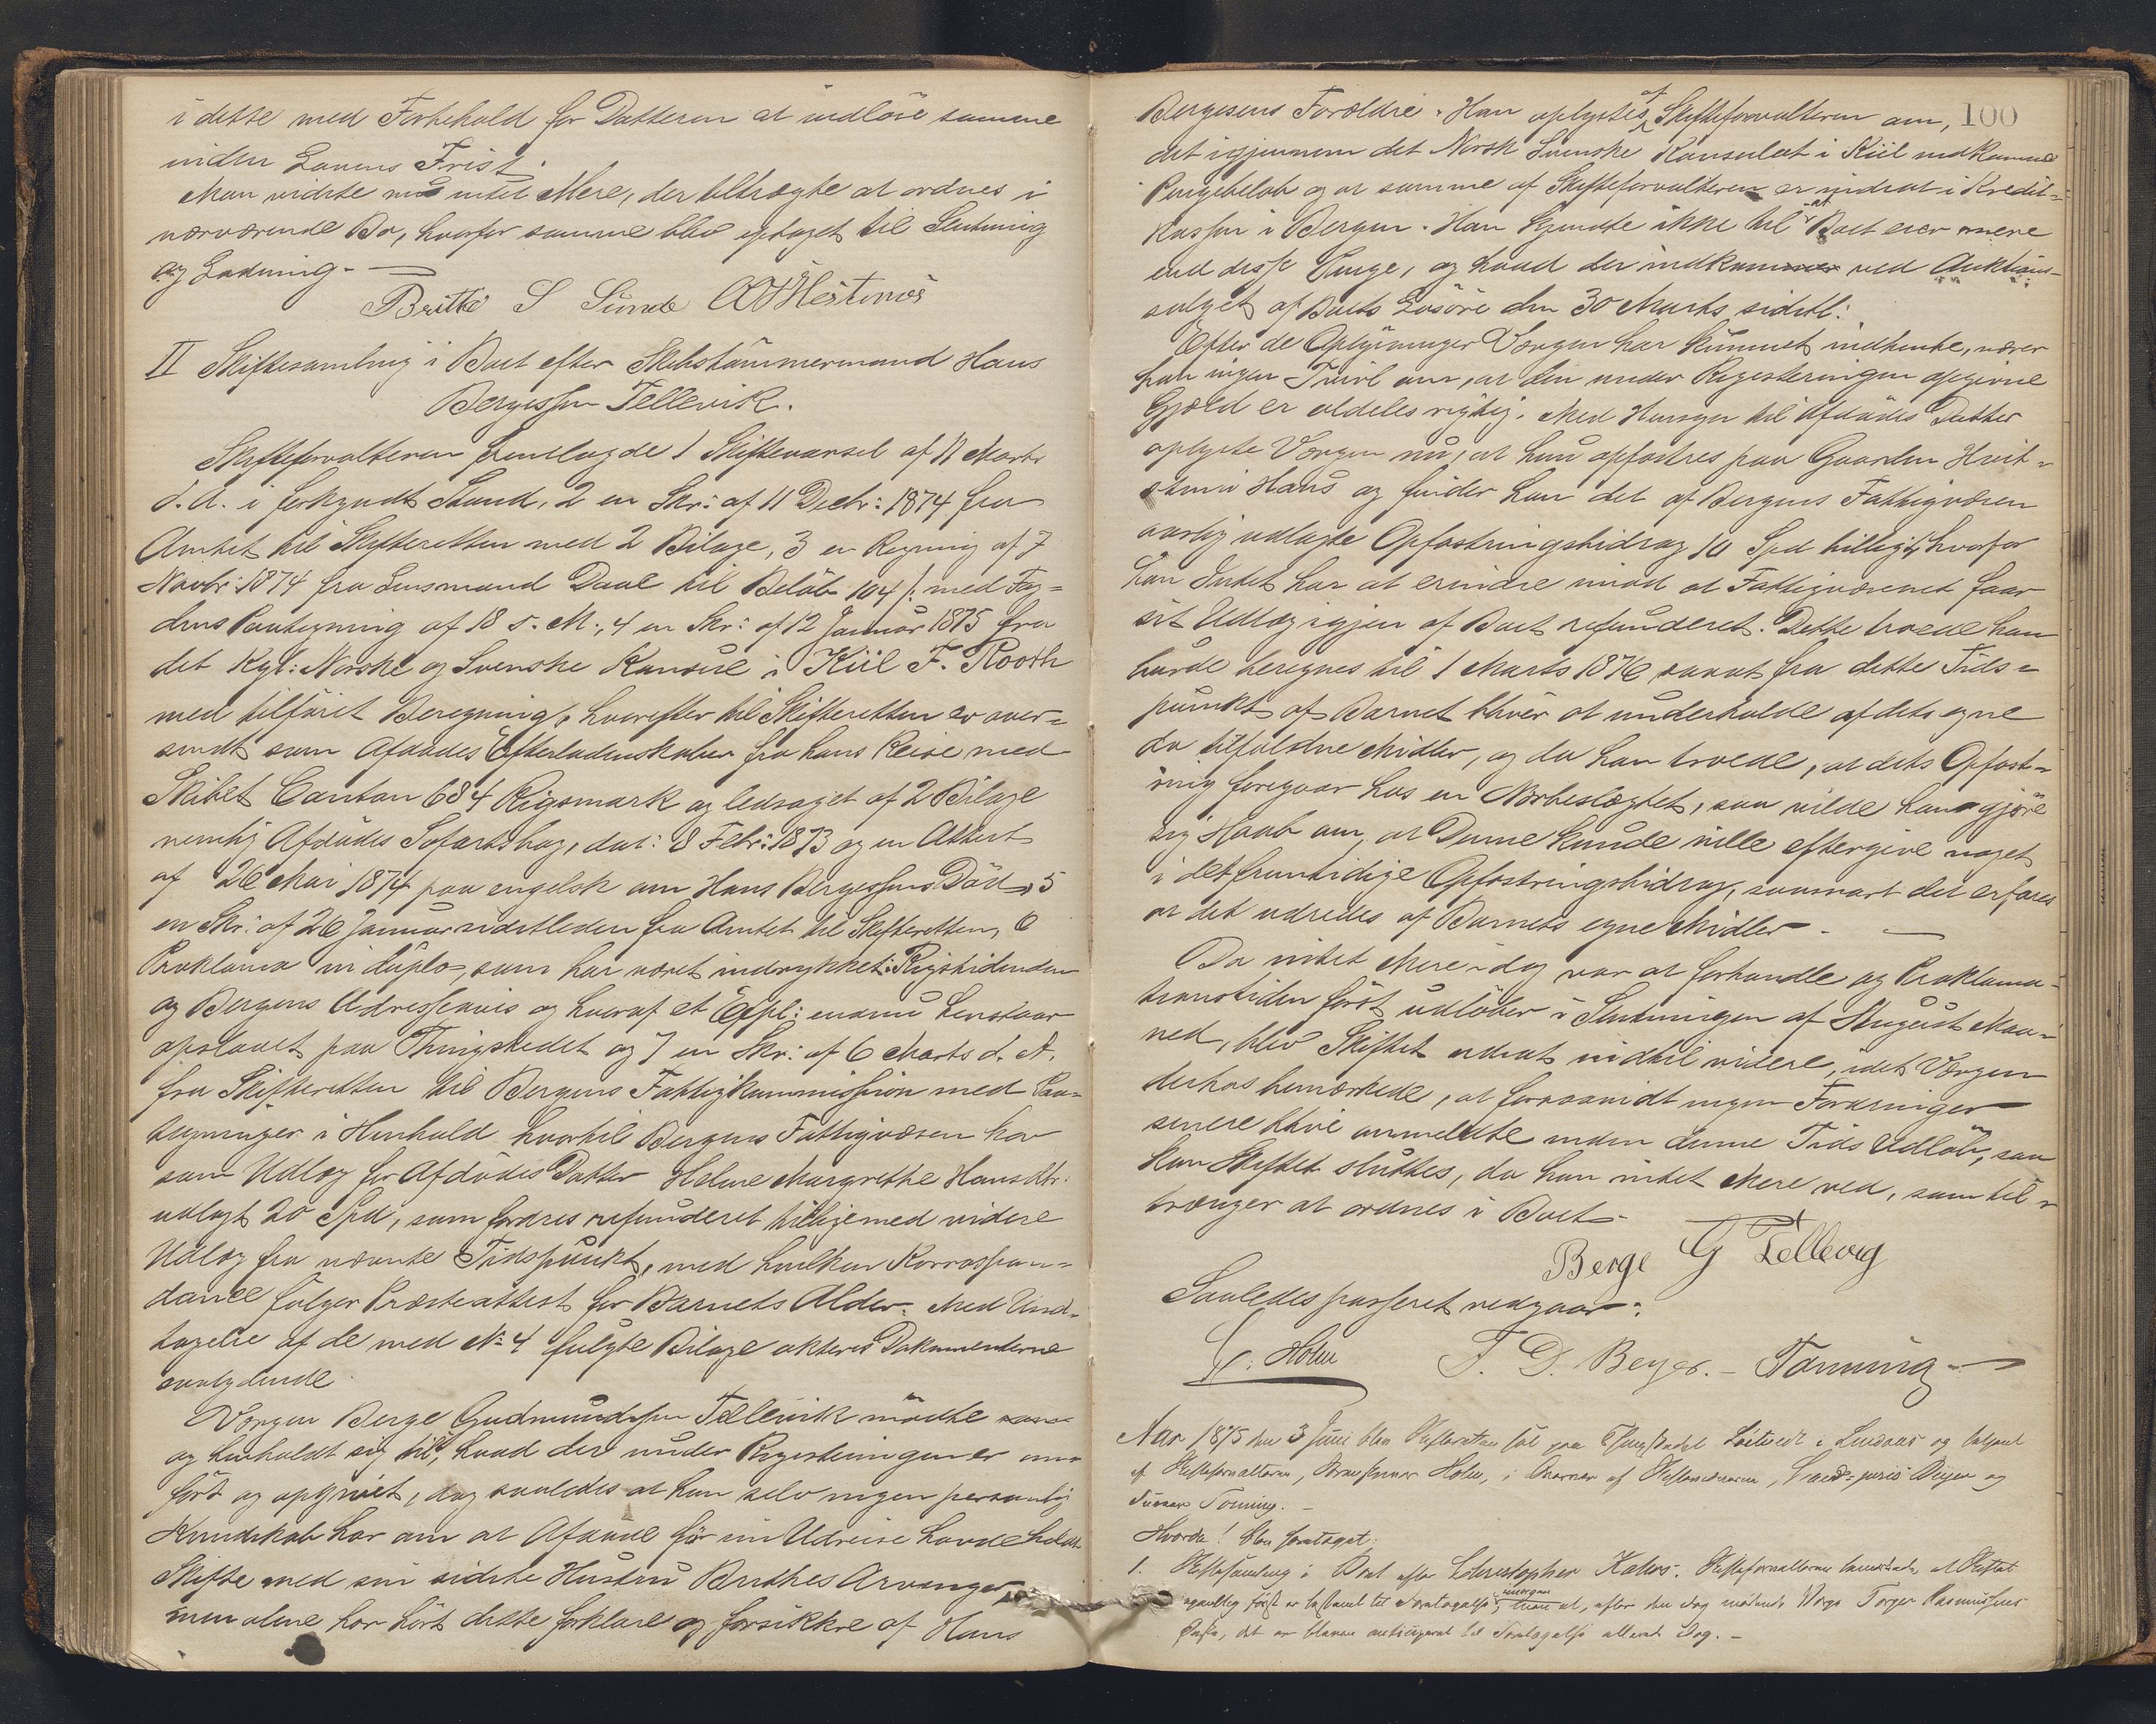 i dette med Forbehold for Datteren at indløse samme
inden Lovens Frist.
Man vidste nu intet Mere, der tiltrængte at ordnes i
nærværende Bo, hvorfor samme blev optaget til Slutning
og Lodning.
Britha S Sunde
II Skiftesamling i Boet efter Skibstømmermand Hans
Bergesen Tellevik.
Skifteforvalteren fremlagde 1 Skiftevarsel af 11 Marts
d. A. i forkyndt Stand, 2 en Skr: af 11 Decbr: 1874 fra
Amtet til Skifteretten med 2 Bilage, 3 en Regning af 7
Novbr: 1874 fra Lensmand Daae til Beløb 104 /: med Fog=
dens Paategning af 18 s. M., 4 en Skr: af 12 Januar 1875 fra
det Kgl: Norske og Svenske Konsul i Kiil F. Rooth
med tilføiet Beregning, hvorefter til Skifteretten er over=
sendt som Afdødes Efterladenskaber fra hans Reise med
Skibet Canton 684 Rigsmark og ledsaget af 2 Bilage
nemlig Afdødes Søfartsbog, dat: 8 Febr: 1873 og en Attest
af 26 Mai 1874 paa engelsk om Hans Bergessens Død, 5
en Skr: af 26 Januar sidstleden fra Amtet til Skifteretten, 6
Proklama in duplo, som har været indrykket i Rigstidenden
og Bergens Adresseavis og hvoraf et Expl: endnu henstaar
opslaaet paa Thingstedet og 7 en Skr: af 6 Marts d. A.
fra Skifteretten til Bergens Fattigkommission med Paa=
tegninger i Henhold hvortil Bergens Fattigvæsen har
som Udlæg for Afdødes Datter Helene Margrethe Hansdtr:
udlagt 20 Spd, som fordres refunderet tilligemed videre
Udlæg fra nævnte Tidspunkt, med hvilken Korrespon=
dance følger Præsteattest for Barnets Alder. Med Und=
tagelse af de med No 4 fulgte Bilage akteres Dokumenterne
saalydende
Værgen Berge Gudmundsen Tellevik mødte
og henholdt sig til, hvad der under Registreringen er an=
ført og opgivet, dog saaledes at han selv ingen personlig
Kundskab har om at Afdøde før sin Udreise havde holdt
Skifte med sin sidste Hustru Berthes Arvinger,
men alene har hørt dette forklare og forsikkre af Hans
100
Bergesens Forældre. Han oplystes af Skifteforvalteren om,
det igjennem det Norsk Svenske Konsulat i Kiil indkomne
Pengebeløb og at samme af Skifteforvalteren er indsat i Kredit=
kassen i Bergen. Han kjendte ikke til at Boet eier mere
end disse Penge, og hvad der indkommer ved Auktions=
salget af Boets Løsøre den 30 Marts sidstl:
Efter de Oplysninger Værgen har kunnet indhente, nærer
han ingen Tvivl om, at den under Registeringen opgivne
Gjæld er aldeles rigtig. Med Hensyn til Afdødes Datter
oplyste Værgen nu, at hun opfostres paa Gaarden Hvit=
steen i Haus og finder han det af Bergens Fattigvæsen
aarlig udlagte Opfostringsbidrag 10 Spd billigt, hvorfor
han Intet har at erindre imod at Fattigvæsenet faar
sit Udlæg igjen af Boet refunderet. Dette troede han
burde beregnes til 1 Marts 1876 saasat fra dette Tids=
punkt af Barnet bliver at underholde af dets egne
da tilfaldne Midler, og da han troede, at dets Opfost=
ring foregaar hos en Nærbeslægtet, saa vilde han gjøre
sig Haab om, at Denne kunde ville eftergive noget
i det fremtidige Opfostringsbidrag, saasnart det erfares
at det udredes af Barnets egne Midler.
Da intet Mere idag var at forhandle og Proklama=
tionstiden først udløber i Slutningen af August Maa=
ned, blev Skiftet udsat indtil videre, idet Værgen
derhos bemærkede, at forsaavidt ingen Fordringer
senere blive anmeldte inden denne Tids Udløb, saa
kan Skiftet sluttes, da han intet Mere ved, som til=
trænger at ordnes i Boet.
Berge G Tellevig
Saaledes passeret vedgaar:
Holm J. D. Beyer. Tonning
Aar 1875 den 3 Juni blev Skifteretten sat paa Thingstedet i Lindaas og betjent
af Skifteforvalteren, Holm, i Overvær af Skiftevidnerne, Beyer og
Tonning.
Hvorda! blev foretaget:
1. Skiftesamling i Boet efter Skifteforvalteren bemærkede, at Skiftet
egentlig først er bestemt til Foretagelse imorgen men at, efter den dog mødende Værge Torger Rasmussens
det er blevet anticiperet til Foretagelse allerede idag.